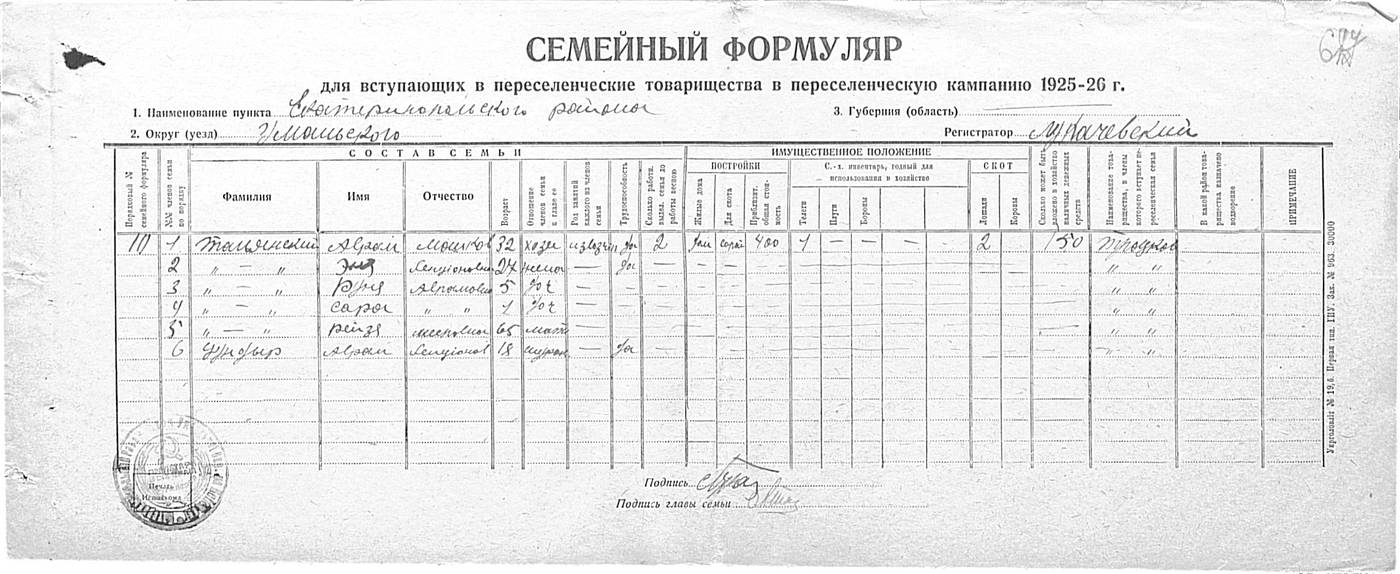 677
СЕМЕЙНЫЙ ФОРМУЛЯР
для вступающих в переселенческие товарищества в переселенческую кампанию 1925-26 г.
1. Наименование пункта Екатеринопольского района 3. Губерния (область)
2. Округ (уезд) Уманьского Регистратор
Порядковый № семейного формуляра
№№ членов семьи по порядку
СОСТАВ СЕМЬИ
Фамилия
Имя
Отчество
Возраст
Отношение членов семьи к главе ее
Род занятий каждого из членов семьи
Трудоспособность
Сколько работн. выдел. семья до работы весною
ИМУЩЕСТВЕННОЕ ПОЛОЖЕНИЕ
ПОСТРОЙКИ
Жилые дома
Для скота
Приблизит. общая стоимость
С.-х. инвентарь, годный для использования в хозяйстве
Телеги
Плуги
Бороны
СКОТ
Лошади
Коровы
Сколько может быть вложено в хозяйство наличных денежных средств
Наименование товарищества, в члены которого вступает переселенческая семья
В какой район товарищества назначено водворение
ПРИМЕЧАНИЕ
10 1 Тальянский Аврам Мошков 32 хозя извозчи да 2 дом сарай 400 1 — — — — 2 150
2 „ — „ Эня Бенционовна 27 жена — да — — — — — — — — — — „ „
3 „ — „ Руня Аврамовна 5 доч — — — — — — — — — — — „ „
4 „ — „ Сара „ „ 1 доч — — — — — — — — — — — „ „
5 „ — „ Рейзя 65 мат — — — — — — — — — — — „ „
6 Аврам Бенционов 18 шурин — да — — — — — — — — — — „ „
Печать
Исполкома
Подпись
Подпись главы семьи
Укрголовліт № 19,б. Первая тип. ГПУ. Зак. № 963. 30000